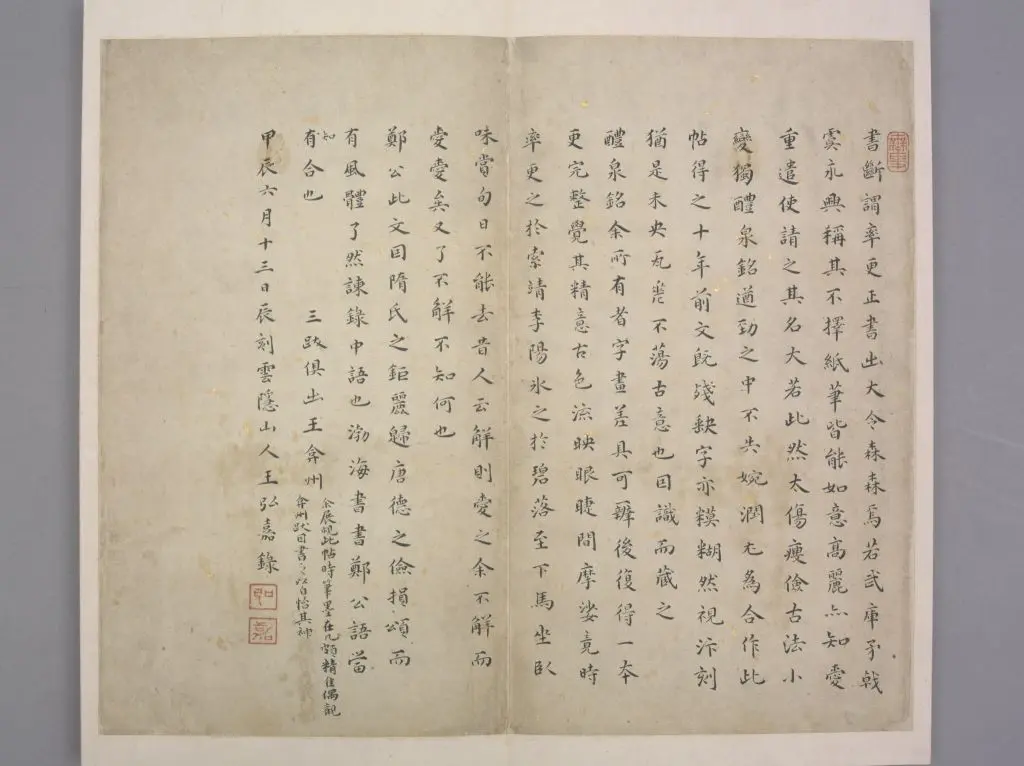 書斷謂率更正書出大令森森焉若武庫矛戟
虞永興稱其不擇紙筆皆能如意高麗亦知愛
重遣使請之其名大若此然太傷瘦儉古法小
變獨醴泉銘遒勁之中不失婉潤尤為合作此
帖得之十年前文既殘缺字亦糢糊然視汴刻
猶是未央瓦甓不蕩古意也因識而藏之
醴泉銘余所有者字畫差具可辨後復得一本
更完整覺其精意古色流映眼睫間摩娑竟時
率更之於索靖李陽冰之於碧落至下馬坐臥
味賞旬日不能去昔人云解則愛之余不解而
愛愛矣又了不解不知何也
鄭公此文因隋氏之鉅麗歸唐德之儉損頌而
有風體了然諫錄中語也渤海書書鄭公語當
知
有合也
三跋俱出王弇州
余展硯此帖時筆墨在几頗精佳偶觀
弇州跋因書之以自怡其神
甲辰六月十三日辰刻雲隱山人王弘嘉錄